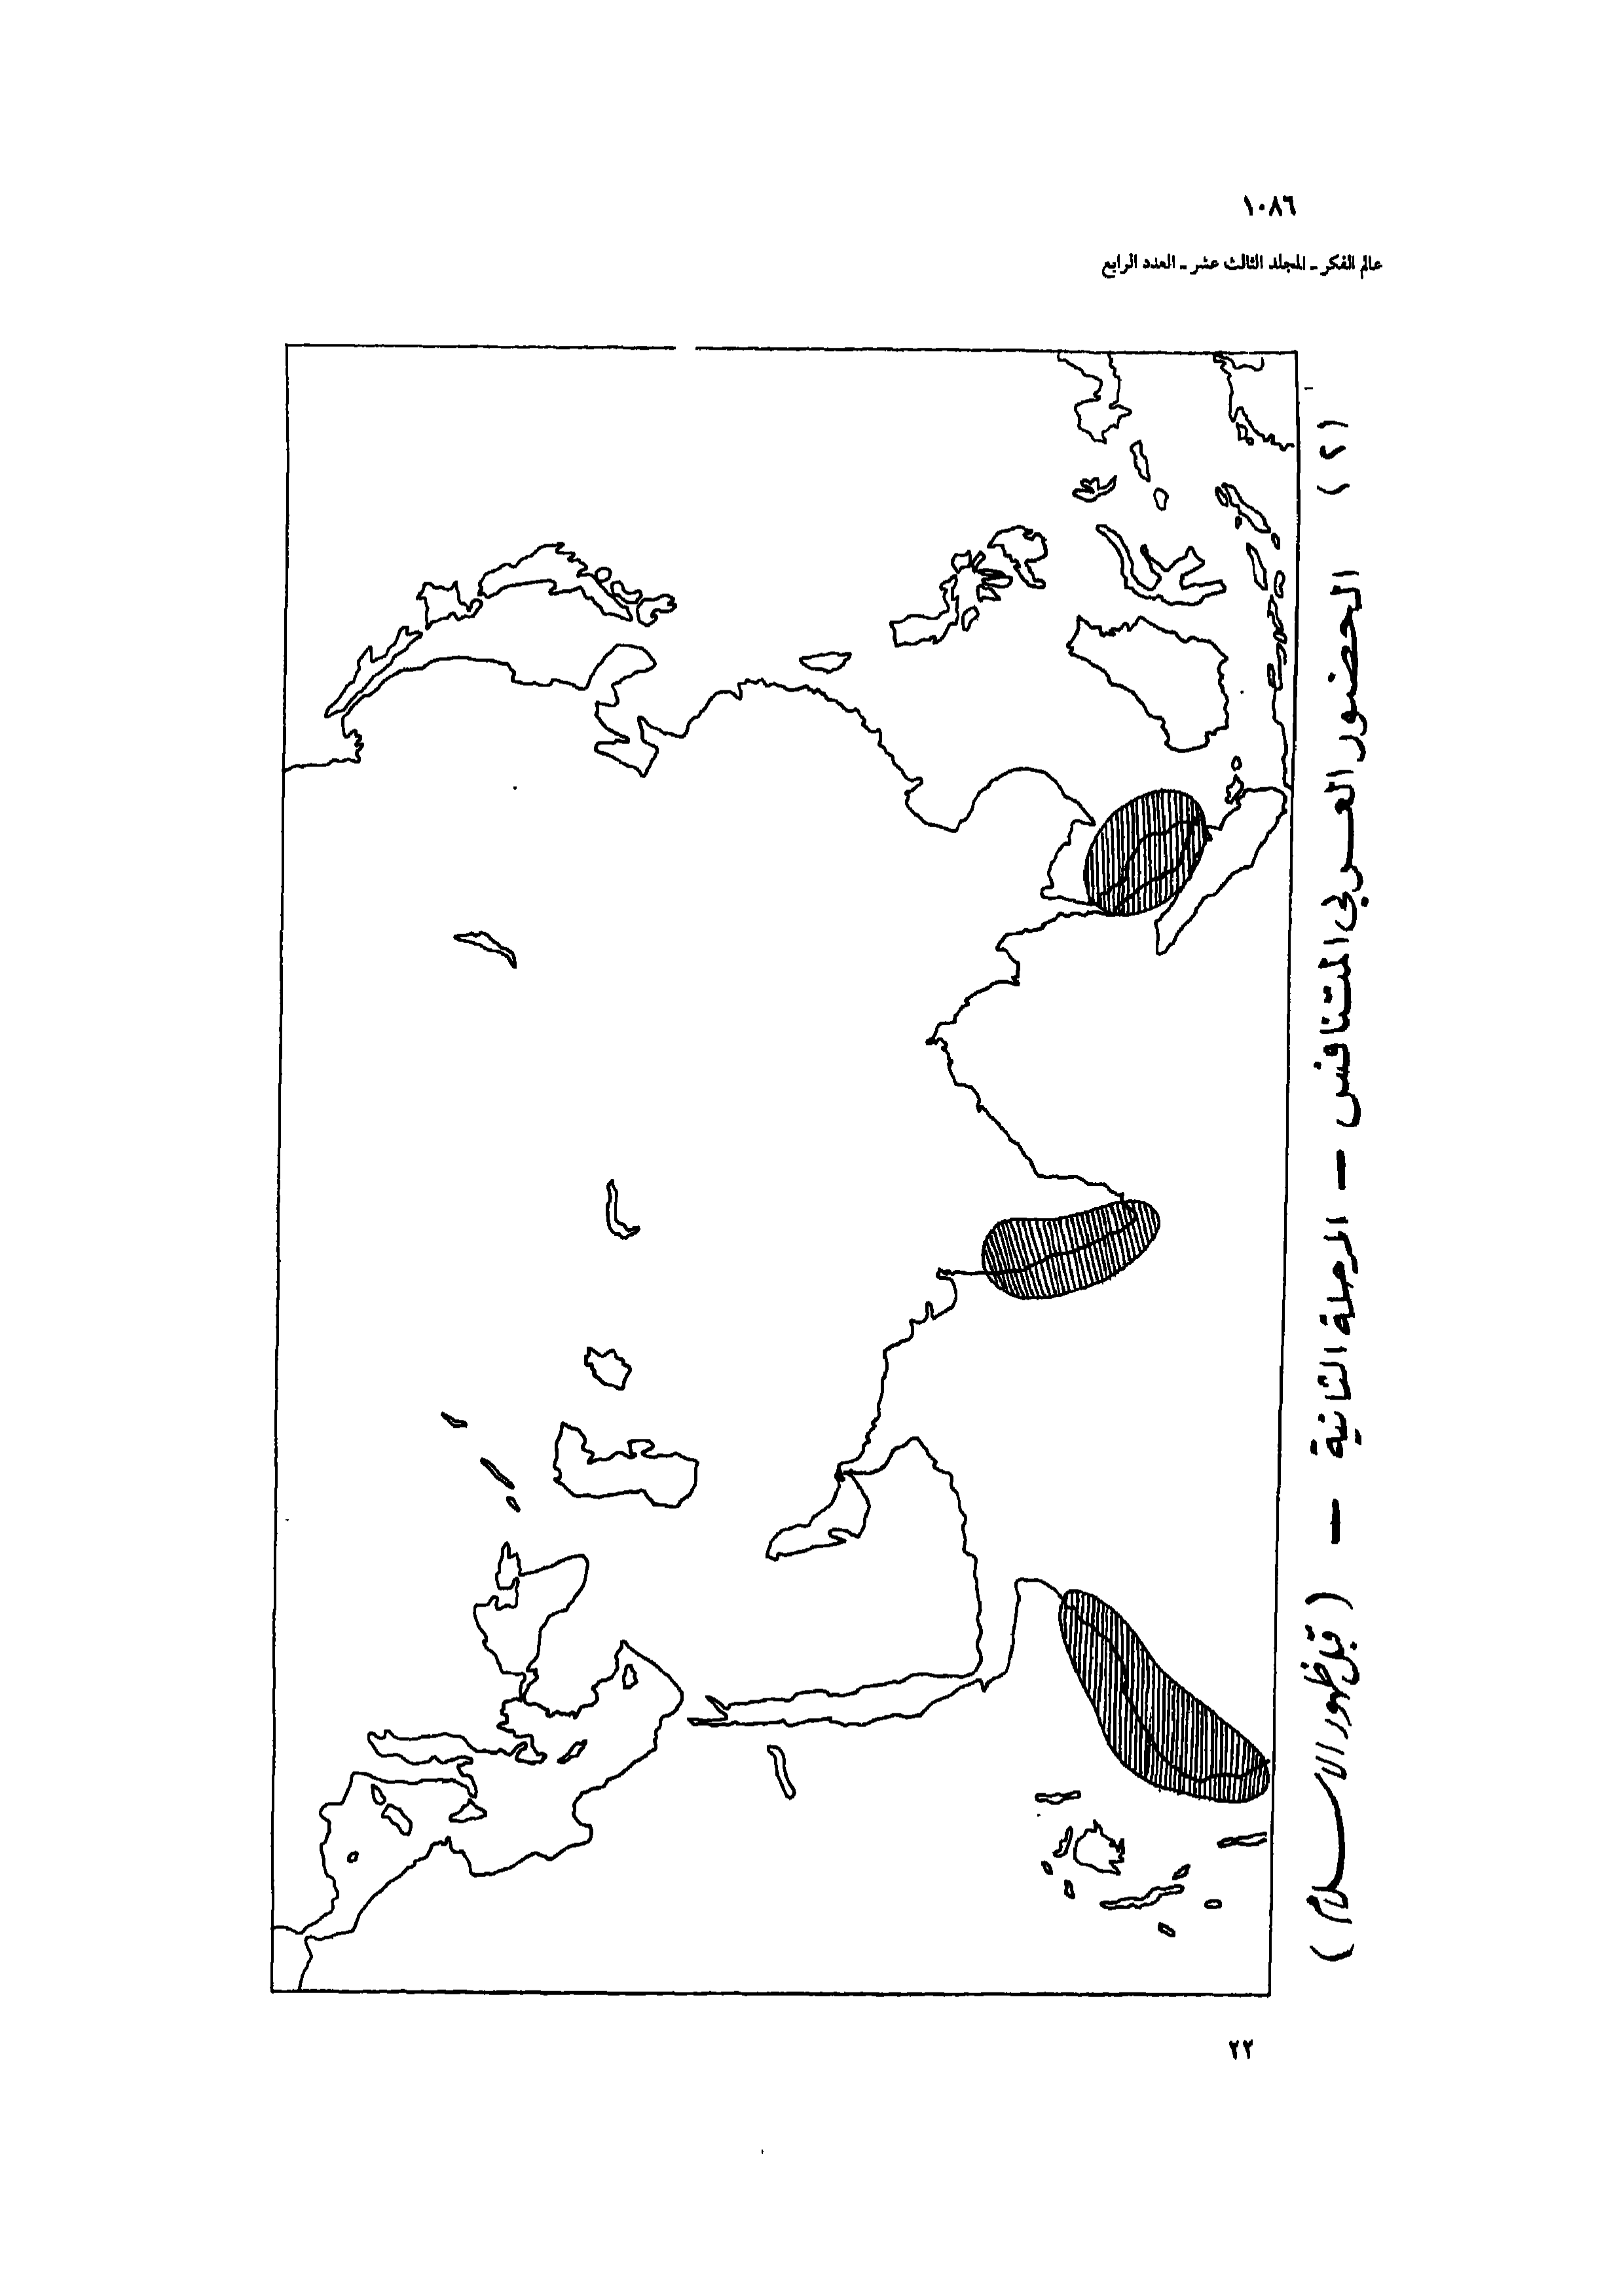 ١٠٨٦
عالم الفكر - المجلد الثالث عشر - العدد الرابع
(٢) الحضور العربي المتنافس - المرحلة الثانية - (قبل ظهور الاسلام)
٢٢